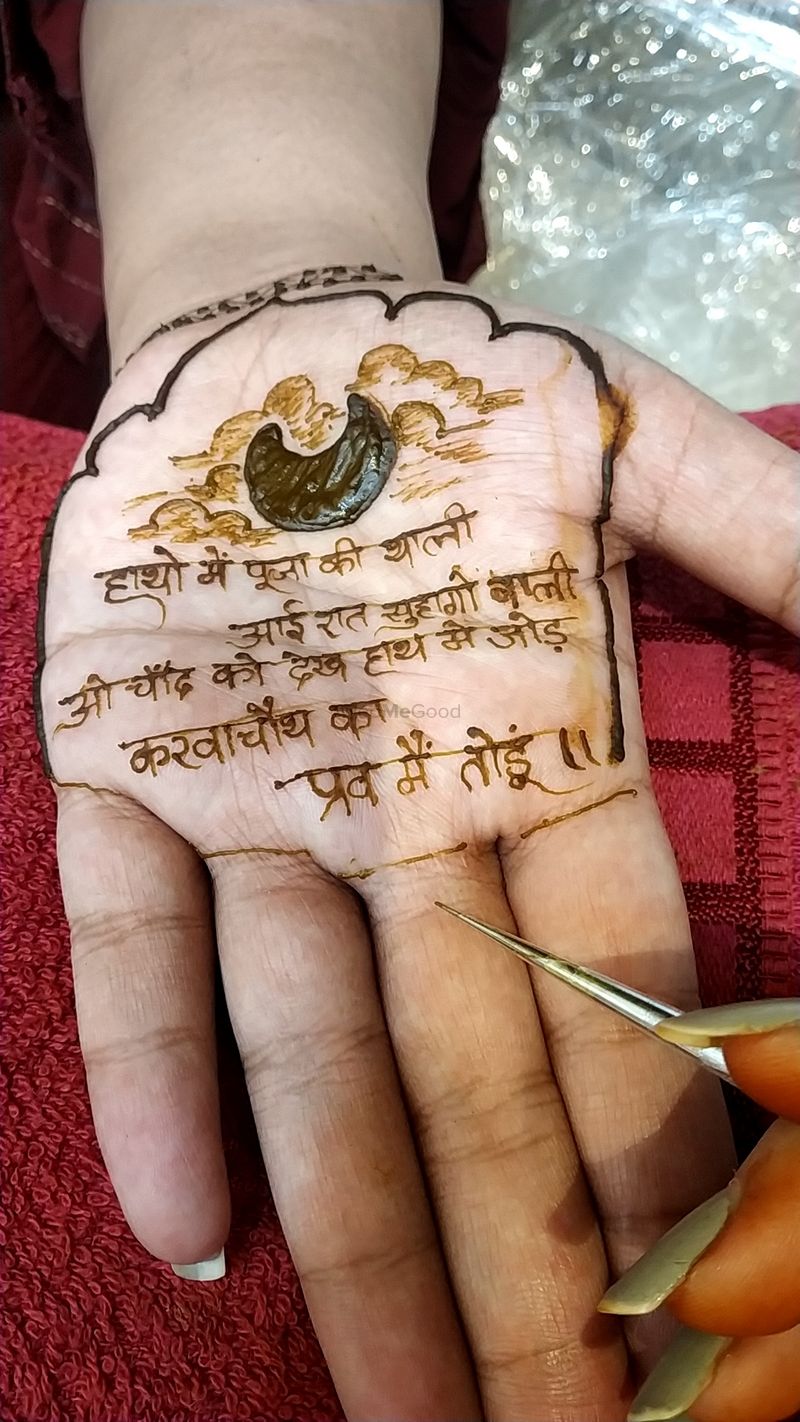 हाथो में पूजा की थाली
आई रात सुहागो वाली
ओ चाँद को देख हाथ मे जोड़
करवाचौथ का
प्रव मैं तोडूं ॥
MeGood